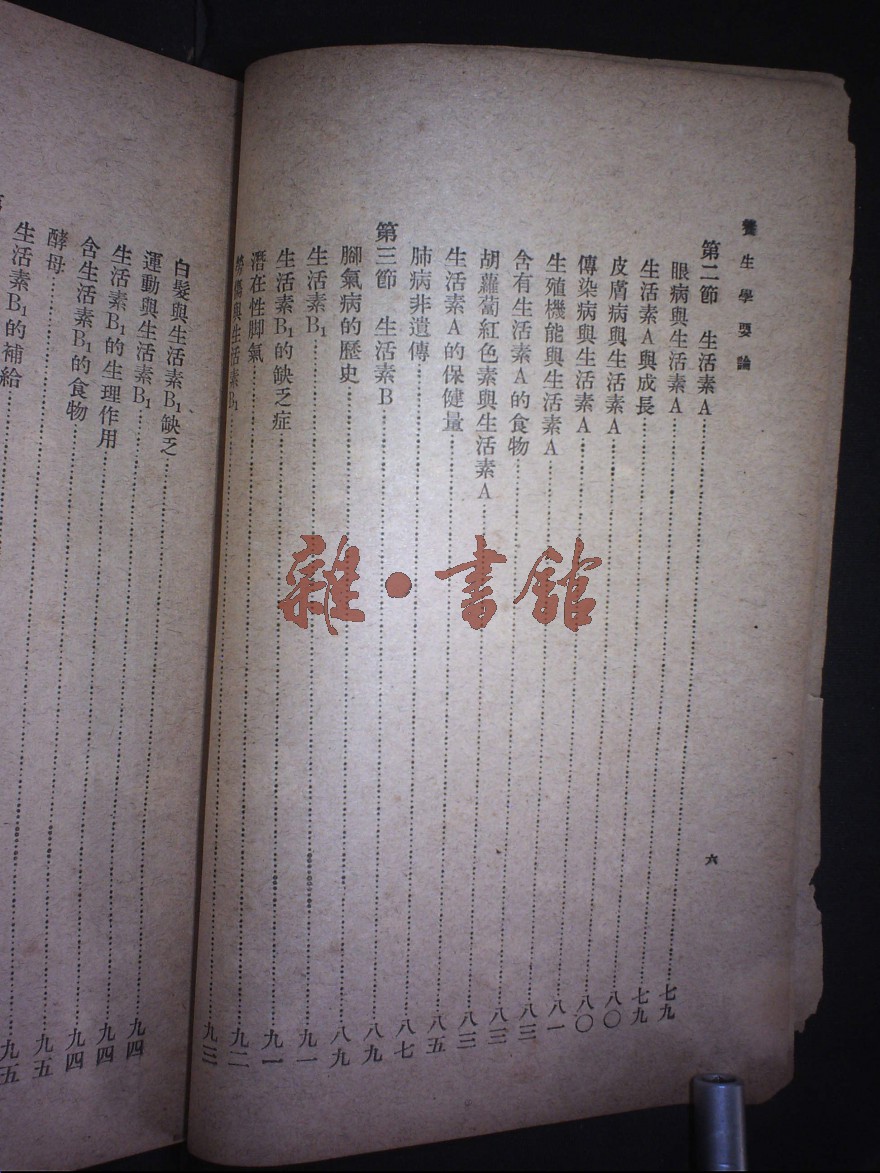 養生學要論
六
第二節 生活素A……七九
眼病與生活素A……七九
生活素A與成長……八〇
皮膚病與生活素A……八〇
傳染病與生活素A……八一
生殖機能與生活素A……八三
含有生活素A的食物……八三
胡蘿蔔紅色素與生活素A……八三
生活素A的保健量……八五
肺病非遺傳……八七
第三節 生活素B……八九
腳氣病的歷史……八九
生活素B₁……九一
生活素B₁的缺乏症……九一
潛在性脚氣……九二
勞傷與生活素B₁……九三
白髮與生活素B₁缺乏……九四
運動與生活素B₁……九四
生活素B₁的生理作用……九四
含生活素B₁的食物……九五
酵母……九五
生活素B₁的補給
雜·書館